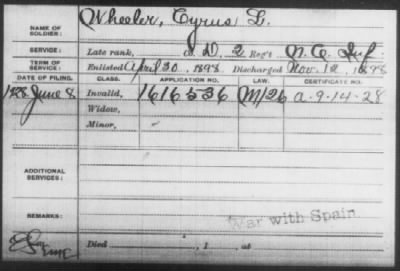 NAME OF SOLDIER: Wheeler, Cyrus L.
SERVICE: Late rank, Co. D, 2 Reg't N.C. Inf
TERM OF SERVICE: Enlisted April 30, 1898 Discharged Nov. 12, 1898
DATE OF FILING. CLASS. APPLICATION NO. LAW. CERTIFICATE NO.
1928 June 8 Invalid, 1616536 M/26 A-9-14-28
Widow,
Minor,
ADDITIONAL SERVICES:
REMARKS: War with Spain
Died , 1 , at